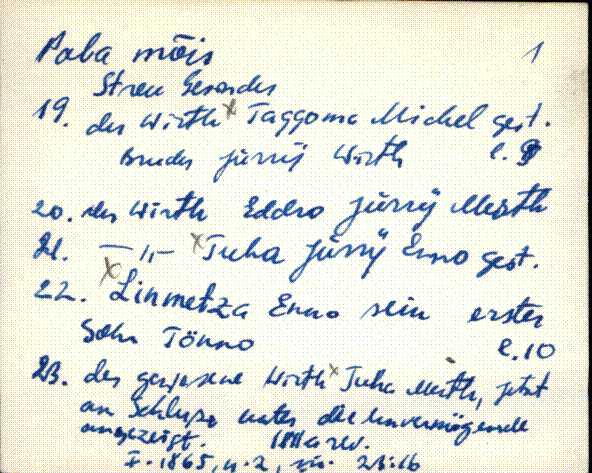 Paba mõis 1
Streu Gesindes
19. der Wirth x Taggoma Michel gest.
Bruder Jürrÿ Wirth l. 9
20. der Wirth Eddro Jürrÿ Marth
21. — " — x Tuha Jürrÿ Enno gest.
22. x Linmetza Enno sein erster
Sohn Tönno l. 10
23. der gewesene Wirth x Tuha Marth, jetzt
am Schlusse unter die Unvermögende
angezeigt. rev.
F. 1865, n. 2, 23:16